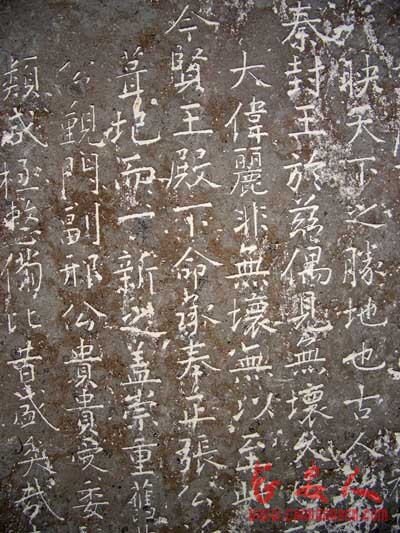 映天下之勝地也古人
秦封王於慈偶見無壞久
大偉麗非無壞無以至此
今賢王殿下命承奉正張公
葺圯而一新之蓋崇重舊
公觀門副邢公貴貴受委
類咸極整備比昔盛矣哉
长安人